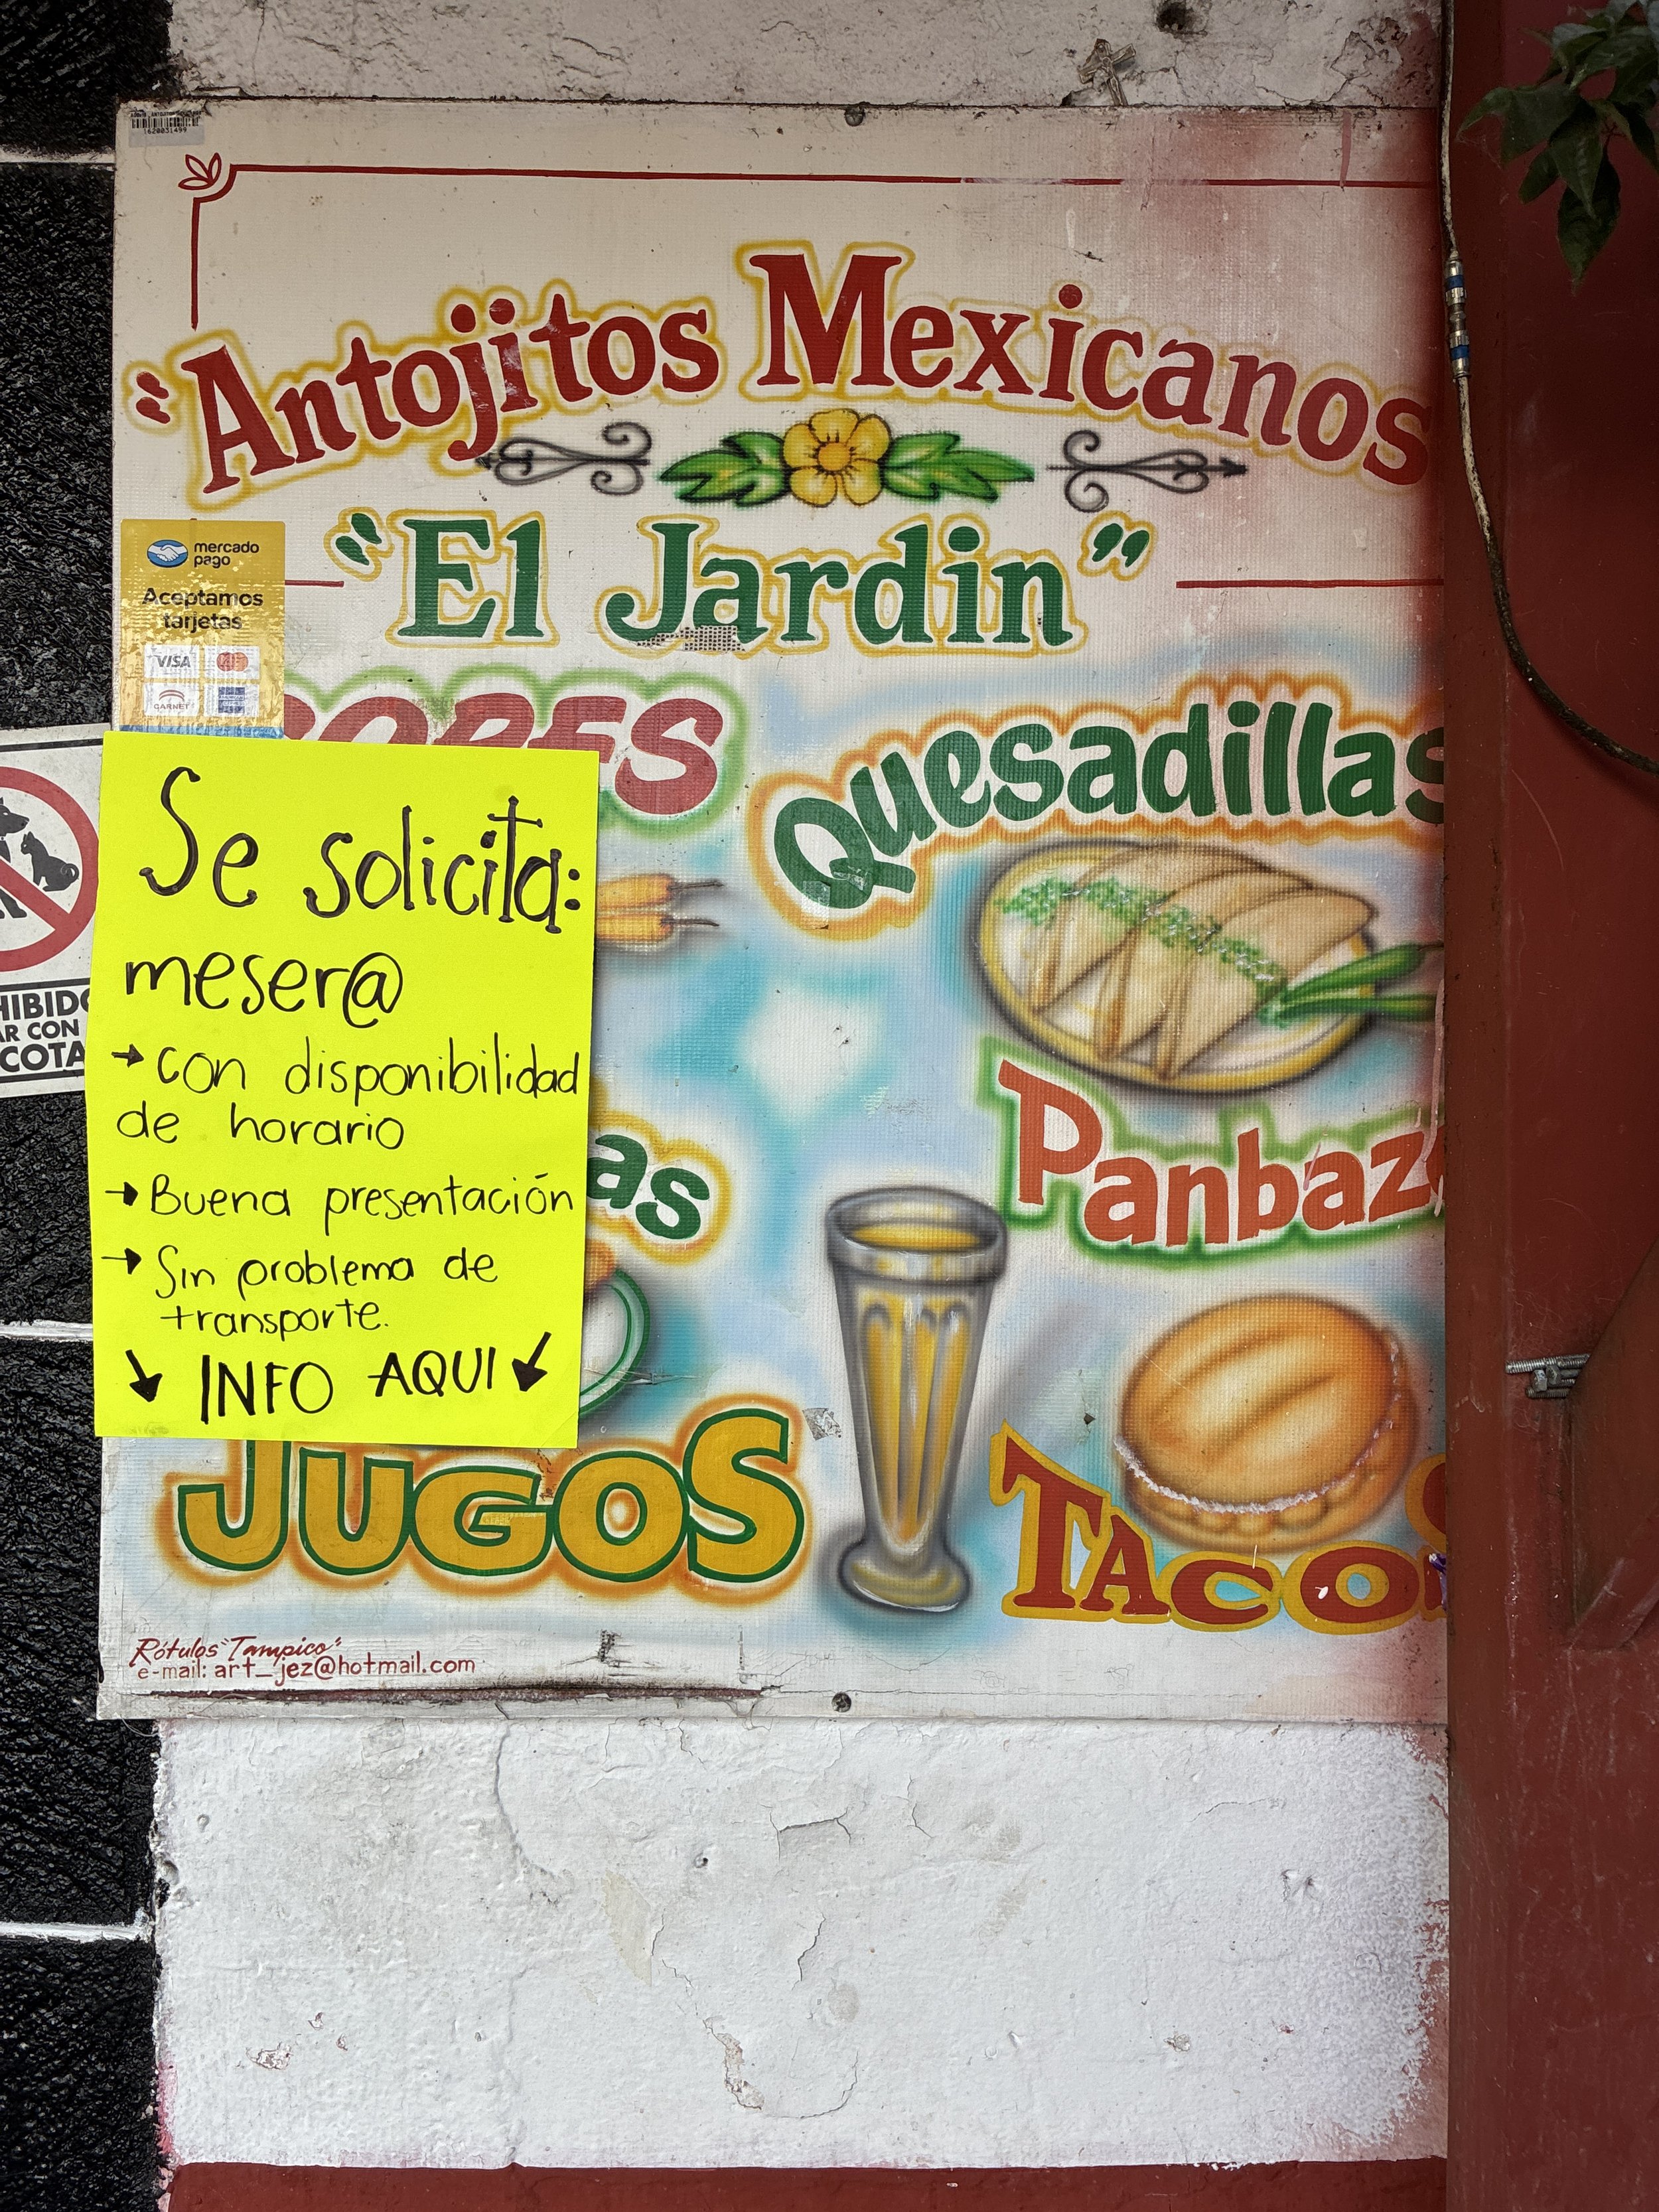 1620031499
"Antojitos Mexicanos
"El Jardin"
mercado
pago
Aceptamos
tarjetas
VISA
CARNET
Quesadillas
Se solicita:
meser@
→ con disponibilidad
de horario
→ Buena presentación
→ Sin problema de
transporte.
↘ INFO AQUI ↙
Panbaz
JUGOS
TACO
Rótulos "Tampico"
e-mail: art_jez@hotmail.com